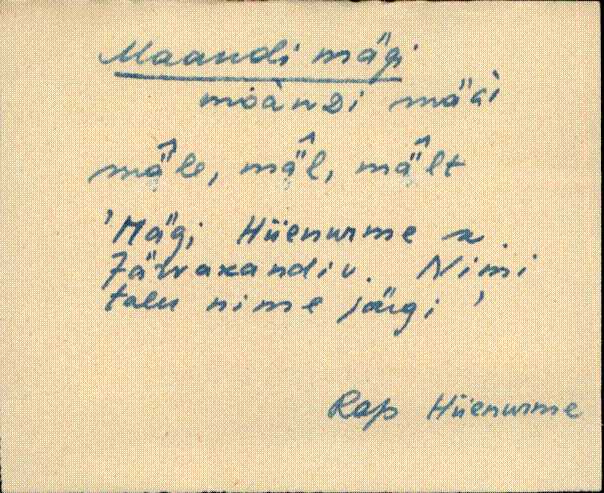 Maandi mägi
moàndi mäǵi
mä̂le, mä̂l, mä̂lt
'Mägi Hüenurme k.
Järvakandi v. Nimi
talu nime järgi'
Rap Hüenurme